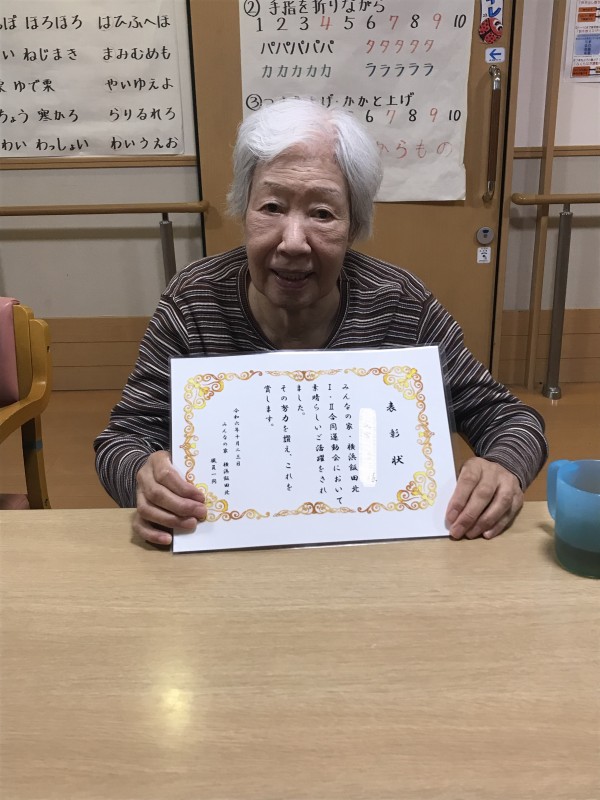 ぱ ほろほろ はひふへほ
い ねじまき まみむめも
ゆで栗 やいゆえよ
ちょう 寒かろ らりるれろ
わい わっしょい わいうえお
②手指を折りながら
1 2 3 4 5 6 7 8 9 10
パパパパパ タタタタタ
カカカカカ ラララララ
③つま先上げ・かかと上げ
6 7 8 9 10
からもの
表彰状
みんなの家・横浜飯田北
Ⅰ・Ⅱ合同運動会において
素晴らしいご活躍をされ
ました。
その努力を讃え、これを
賞します。
令和六年十月二三日
みんなの家 横浜飯田北
職員一同